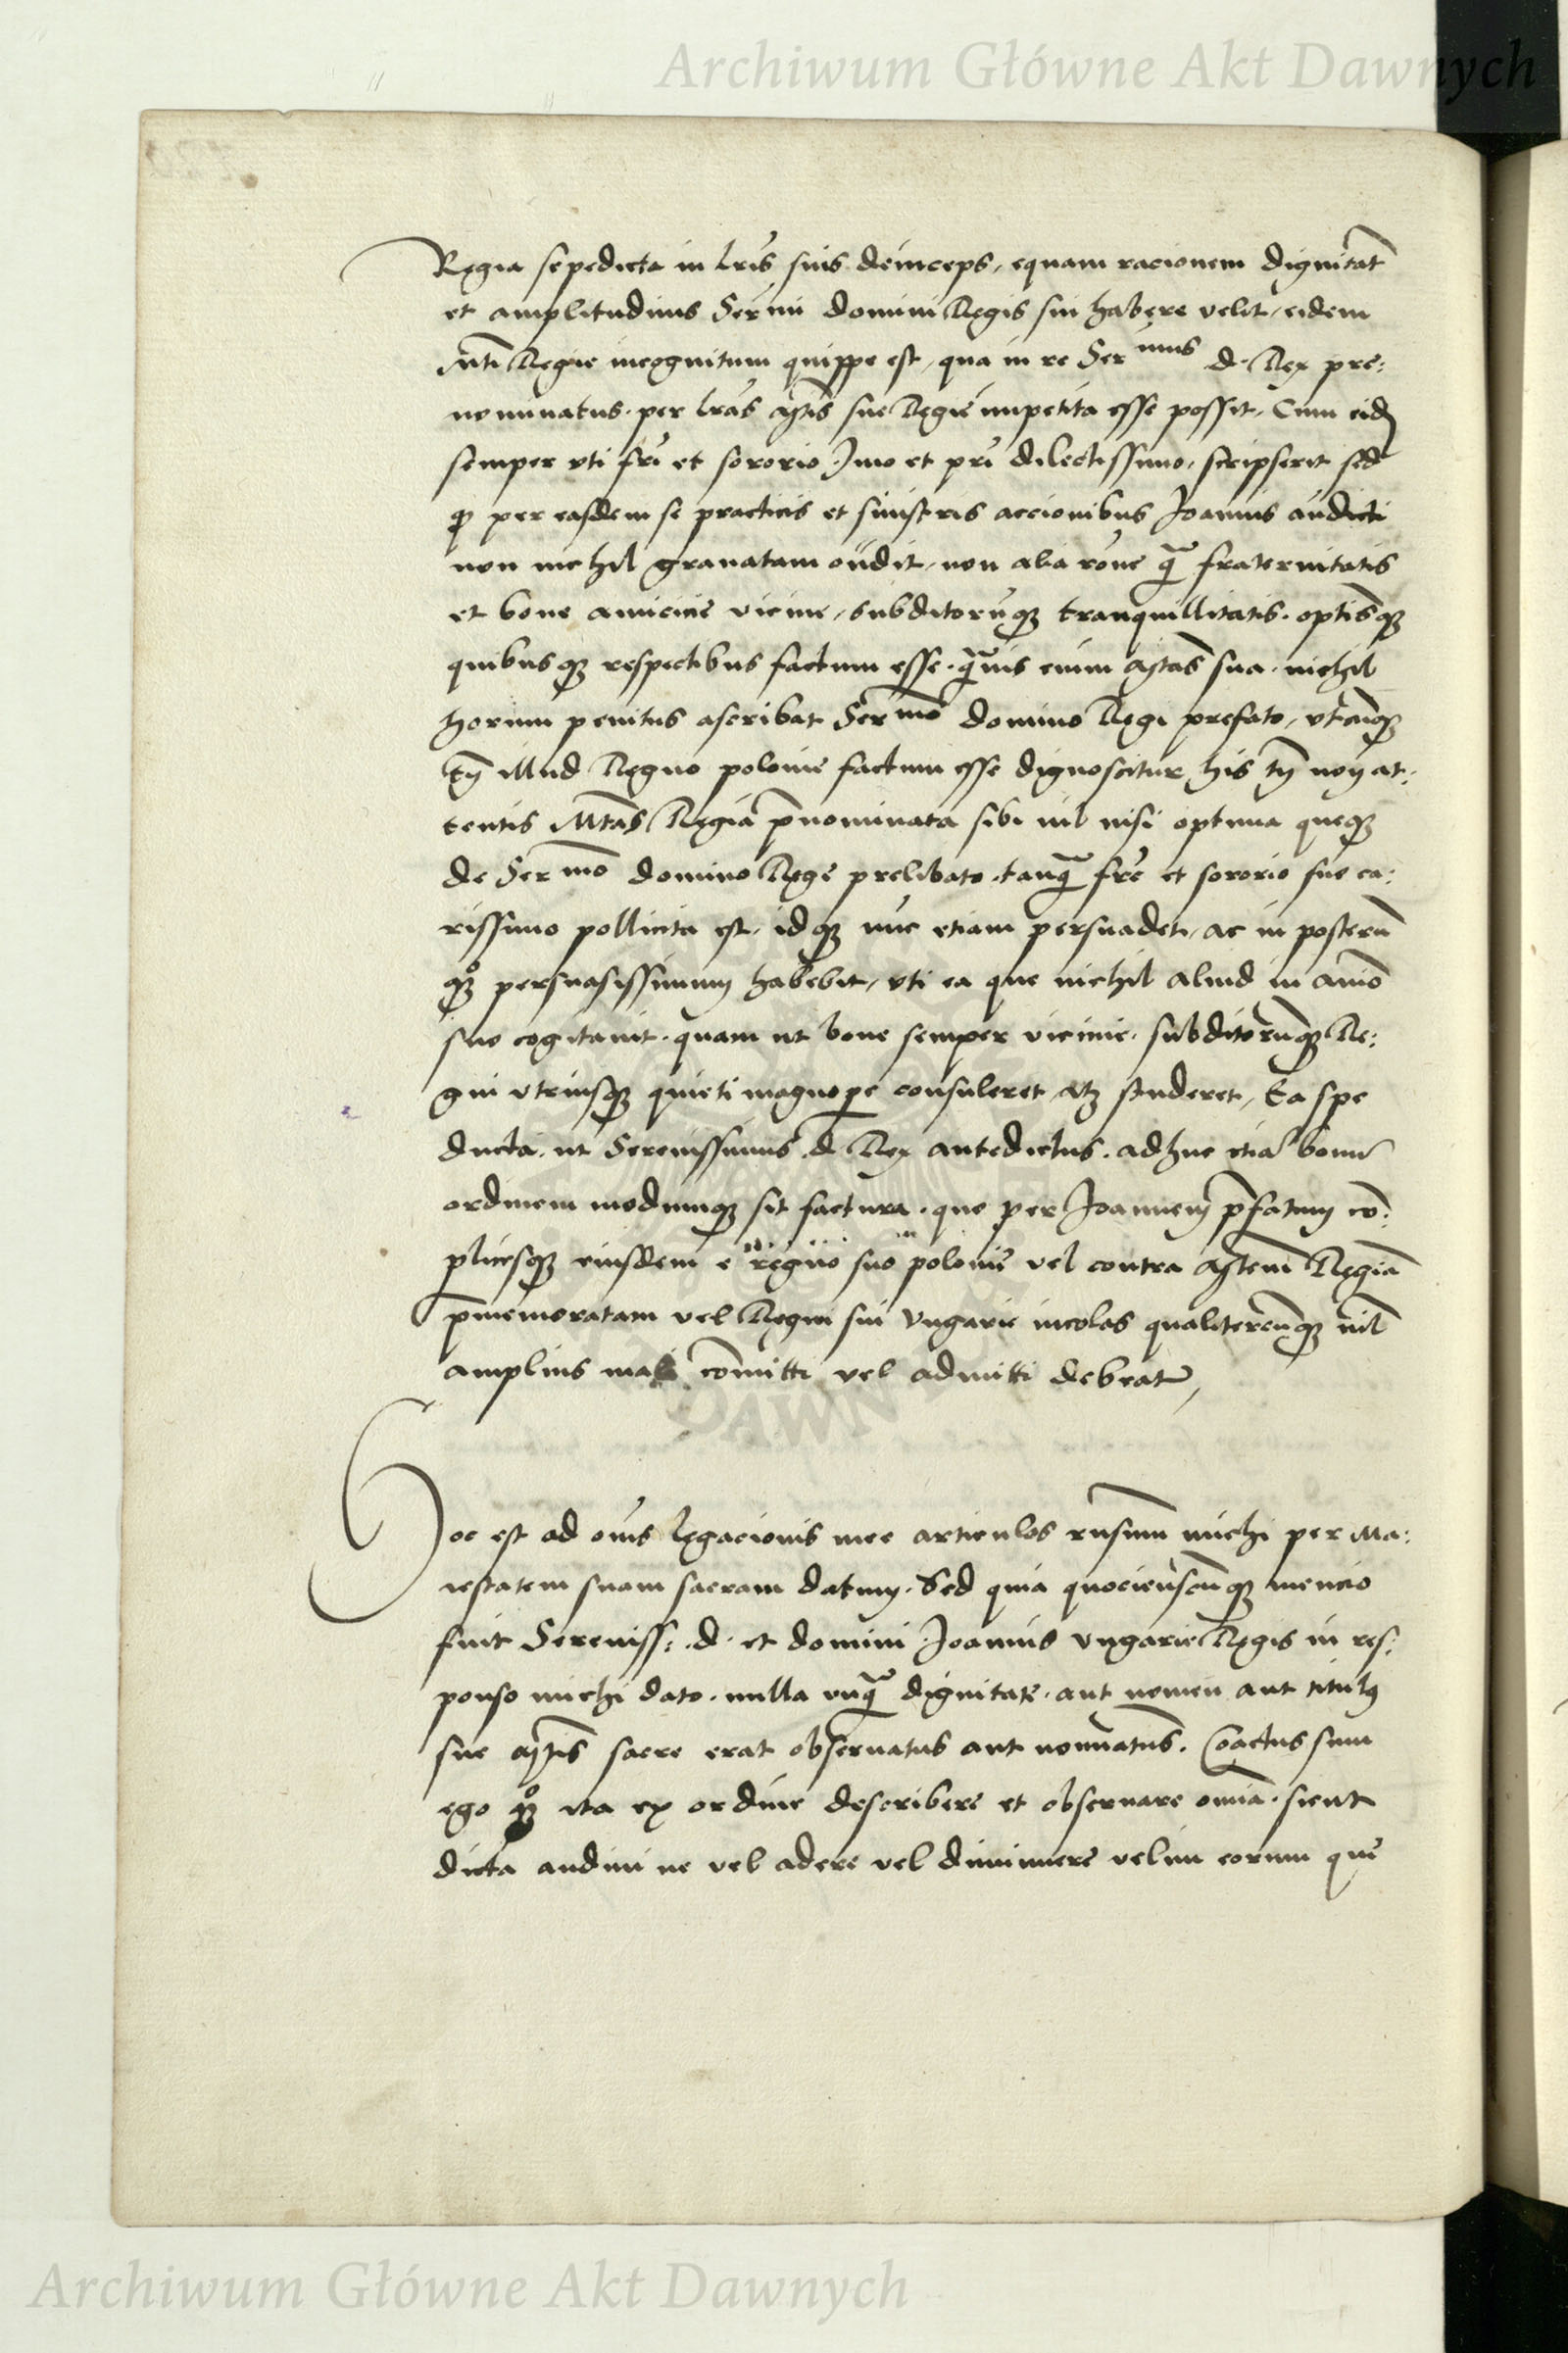 Archiwum Główne Akt Dawnych
Regia sepedicta in lrīs suis deinceps, equam racionem dignitat̄
et amplitudinis Sermi domini Regis sui habere velit, eidem
Mti Regie incognitum quippe est, qua in re Ser mus d. Rex pre:
nominatus. per lrās Mtīs sue Regie impetita esse possit, Cum eid
semper vti frī et sororio Jmo et prī dilectissimo, scripserit sed
q per easdem se practicis et sinistris accionibus Joannis audicti
non nichil grauatam oūdit, non alia rōne q̄ fraternitatis
et bone amicicie vicinie, subditorūq3 tranquillitatis. optīsq3
quibusq3 respectibus factum esse. q̄uis enim Mtās sua. nichil
horum penitus ascribat Ser mō domino Regi prefato, vtcūq3
tn̄ illud Regno polonie factum esse dignoscitur, his tn̄ non at:
tentis Mtās Regia p̄nominata sibi nil nisi optima queq3
de Ser mō domino Rege prelibato. tanq̄ frē et sororio suo ca:
rissimo pollicita est, idq3 nūc etiam persuadet, ac in posterū
q3o persuasissimum habebit, vti ea que nichil aliud in aiō
suo cogitauit. quam ut bone semper vicinie. subditorūq3 Re:
gni vtriusq3 quieti magnope consuleret at3 studeret, Ea spe
ducta. ut Serenissimus d. Rex antedictus. adhuc etiā bonū
ordinem modumq3 sit factura. quo per Joannem p̄fatum cō:
plicesq3 eiusdem e regno suo polonie vel contra Mtem Regiā
p̄memoratam vel Regni sui Vngarie incolas qualitercūq3 nil
amplius mali cōmitti vel admitti debeat,
Hoc est ad oēs legacionis mee articulos rn̄sum michi per Ma:
iestatem suam sacram datum. Sed quia quociēscūq3 mencio
fuit Sereniss: d. et domini Joannis Vngarie Regis in res:
ponso michi dato. nulla vnq̄ dignitatē. aut nomen aut titulus
sue Mtīs sacre erat obseruatus aut nominatus. Coactus sum
ego q3o ita ex ordine describere et obseruare omia. sicut
dicta audiui ne vel adere vel diminuere velim eorum que
Archiwum Główne Akt Dawnych